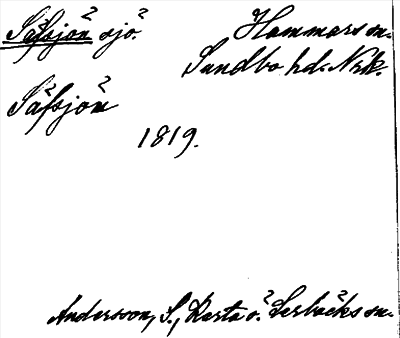 Säfsjön sjö. Hammars sn.
Sundbo hd. Nrk.
Säfsjön
1819.
Andersson, S., Karta ö. Lerbäcks sn.